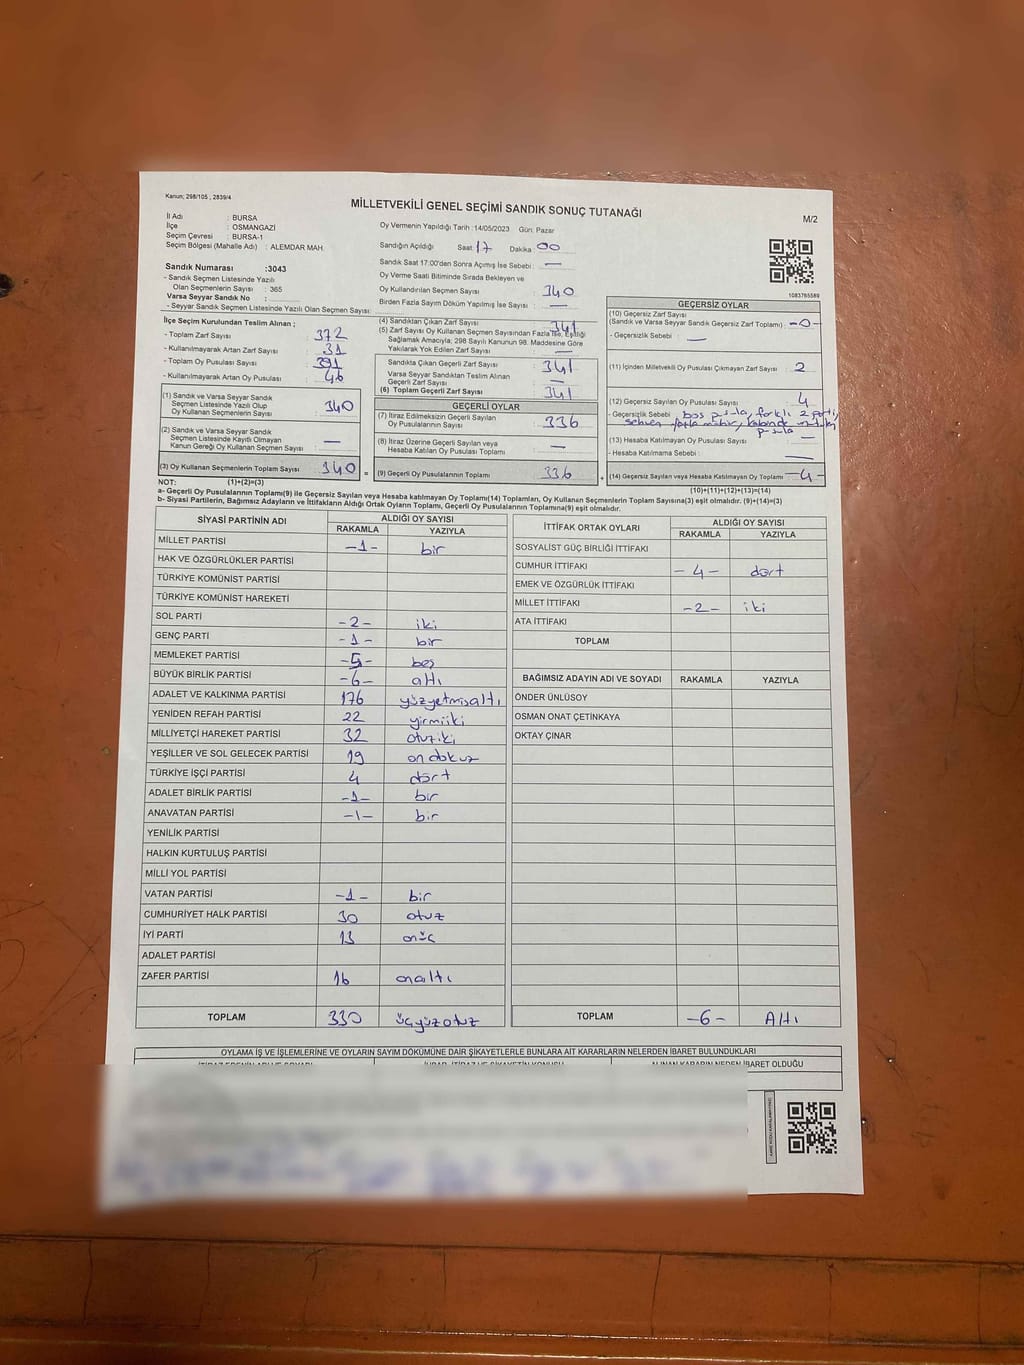 Kanun; 298/105 , 2839/4
MİLLETVEKİLİ GENEL SEÇİMİ SANDIK SONUÇ TUTANAĞI
M/2
İl Adı : BURSA
İlçe : OSMANGAZİ
Seçim Çevresi : BURSA-1
Seçim Bölgesi (Mahalle Adı) : ALEMDAR MAH.
Sandık Numarası :3043
- Sandık Seçmen Listesinde Yazılı
Olan Seçmenlerin Sayısı : 365
Varsa Seyyar Sandık No :
- Seyyar Sandık Seçmen Listesinde Yazılı Olan Seçmen Sayısı:
Oy Vermenin Yapıldığı Tarih :14/05/2023 Gün: Pazar
Sandığın Açıldığı Saat 17 Dakika 00
Sandık Saat 17:00'den Sonra Açımış İse Sebebi : —
Oy Verme Saati Bitiminde Sırada Bekleyen ve
Oy Kullandırılan Seçmen Sayısı : 340
Birden Fazla Sayım Döküm Yapılmış İse Sayısı : —
1083785589
İlçe Seçim Kurulundan Teslim Alınan ;
- Toplam Zarf Sayısı : 372
- Kullanılmayarak Artan Zarf Sayısı : 31
- Toplam Oy Pusulası Sayısı : 391
- Kullanılmayarak Artan Oy Pusulası : 46
(1) Sandık ve Varsa Seyyar Sandık
Seçmen Listesinde Yazılı Olup
Oy Kullanan Seçmenlerin Sayısı : 340
(2) Sandık ve Varsa Seyyar Sandık
Seçmen Listesinde Kayıtlı Olmayan
Kanun Gereği Oy Kullanan Seçmen Sayısı : —
(3) Oy Kullanan Seçmenlerin Toplam Sayısı : 340 =
(4) Sandıktan Çıkan Zarf Sayısı : 341
(5) Zarf Sayısı Oy Kullanan Seçmen Sayısından Fazla İse, Eşitliği
Sağlamak Amacıyla; 298 Sayılı Kanunun 98. Maddesine Göre
Yakılarak Yok Edilen Zarf Sayısı : —
Sandıkta Çıkan Geçerli Zarf Sayısı : 341
Varsa Seyyar Sandıktan Teslim Alınan
Geçerli Zarf Sayısı : —
(6) Toplam Geçerli Zarf Sayısı : 341
GEÇERLİ OYLAR
(7) İtiraz Edilmeksizin Geçerli Sayılan
Oy Pusulalarının Sayısı : 336
(8) İtiraz Üzerine Geçerli Sayılan veya
Hesaba Katılan Oy Pusulaları Toplamı : —
(9) Geçerli Oy Pusulalarının Toplamı : 336 +
GEÇERSİZ OYLAR
(10) Geçersiz Zarf Sayısı
(Sandık ve Varsa Seyyar Sandık Geçersiz Zarf Toplamı) : -0-
- Geçersizlik Sebebi : —
(11) İçinden Milletvekili Oy Pusulası Çıkmayan Zarf Sayısı : 2
(12) Geçersiz Sayılan Oy Pusulası Sayısı : 4
- Geçersizlik Sebebi : boş pusula, farklı 2 parti,
pusula
(13) Hesaba Katılmayan Oy Pusulası Sayısı : —
- Hesaba Katılmama Sebebi : —
(14) Geçersiz Sayılan veya Hesaba Katılmayan Oy Toplamı : -4-
NOT: (1)+(2)=(3)
(10)+(11)+(12)+(13)=(14)
a- Geçerli Oy Pusulalarının Toplamı(9) ile Geçersiz Sayılan veya Hesaba katılmayan Oy Toplamı(14) Toplamları, Oy Kullanan Seçmenlerin Toplam Sayısına(3) eşit olmalıdır. (9)+(14)=(3)
b- Siyasi Partilerin, Bağımsız Adayların ve İttifakların Aldığı Ortak Oyların Toplamı, Geçerli Oy Pusulalarının Toplamına(9) eşit olmalıdır.
SİYASİ PARTİNİN ADI ALDIĞI OY SAYISI
RAKAMLA YAZIYLA
MİLLET PARTİSİ -1- bir
HAK VE ÖZGÜRLÜKLER PARTİSİ
TÜRKİYE KOMÜNİST PARTİSİ
TÜRKİYE KOMÜNİST HAREKETİ
SOL PARTİ -2- iki
GENÇ PARTİ -1- bir
MEMLEKET PARTİSİ -5- beş
BÜYÜK BİRLİK PARTİSİ -6- altı
ADALET VE KALKINMA PARTİSİ 176 yüzyetmişaltı
YENİDEN REFAH PARTİSİ 22 yirmiiki
MİLLİYETÇİ HAREKET PARTİSİ 32 otuziki
YEŞİLLER VE SOL GELECEK PARTİSİ 19 ondokuz
TÜRKİYE İŞÇİ PARTİSİ 4 dört
ADALET BİRLİK PARTİSİ -1- bir
ANAVATAN PARTİSİ -1- bir
YENİLİK PARTİSİ
HALKIN KURTULUŞ PARTİSİ
MİLLİ YOL PARTİSİ
VATAN PARTİSİ -1- bir
CUMHURİYET HALK PARTİSİ 30 otuz
İYİ PARTİ 13 onüç
ADALET PARTİSİ
ZAFER PARTİSİ 16 onaltı
TOPLAM 330 üçyüzotuz
İTTİFAK ORTAK OYLARI ALDIĞI OY SAYISI
RAKAMLA YAZIYLA
SOSYALİST GÜÇ BİRLİĞİ İTTİFAKI
CUMHUR İTTİFAKI -4- dört
EMEK VE ÖZGÜRLÜK İTTİFAKI
MİLLET İTTİFAKI -2- iki
ATA İTTİFAKI
TOPLAM
BAĞIMSIZ ADAYIN ADI VE SOYADI RAKAMLA YAZIYLA
ÖNDER ÜNLÜSOY
OSMAN ONAT ÇETİNKAYA
OKTAY ÇINAR
TOPLAM -6- Altı
OYLAMA İŞ VE İŞLEMLERİNE VE OYLARIN SAYIM DÖKÜMÜNE DAİR ŞİKAYETLERLE BUNLARA AİT KARARLARIN NELERDEN İBARET BULUNDUKLARI
ALINAN KARARIN NEDEN İBARET OLDUĞU